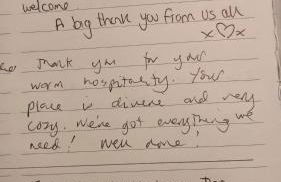 welcome.
A big thank you from us all
x♡x
Thank you for your
warm hospitality. Your
place is divine and very
cozy. We've got everything we
need! Well done!